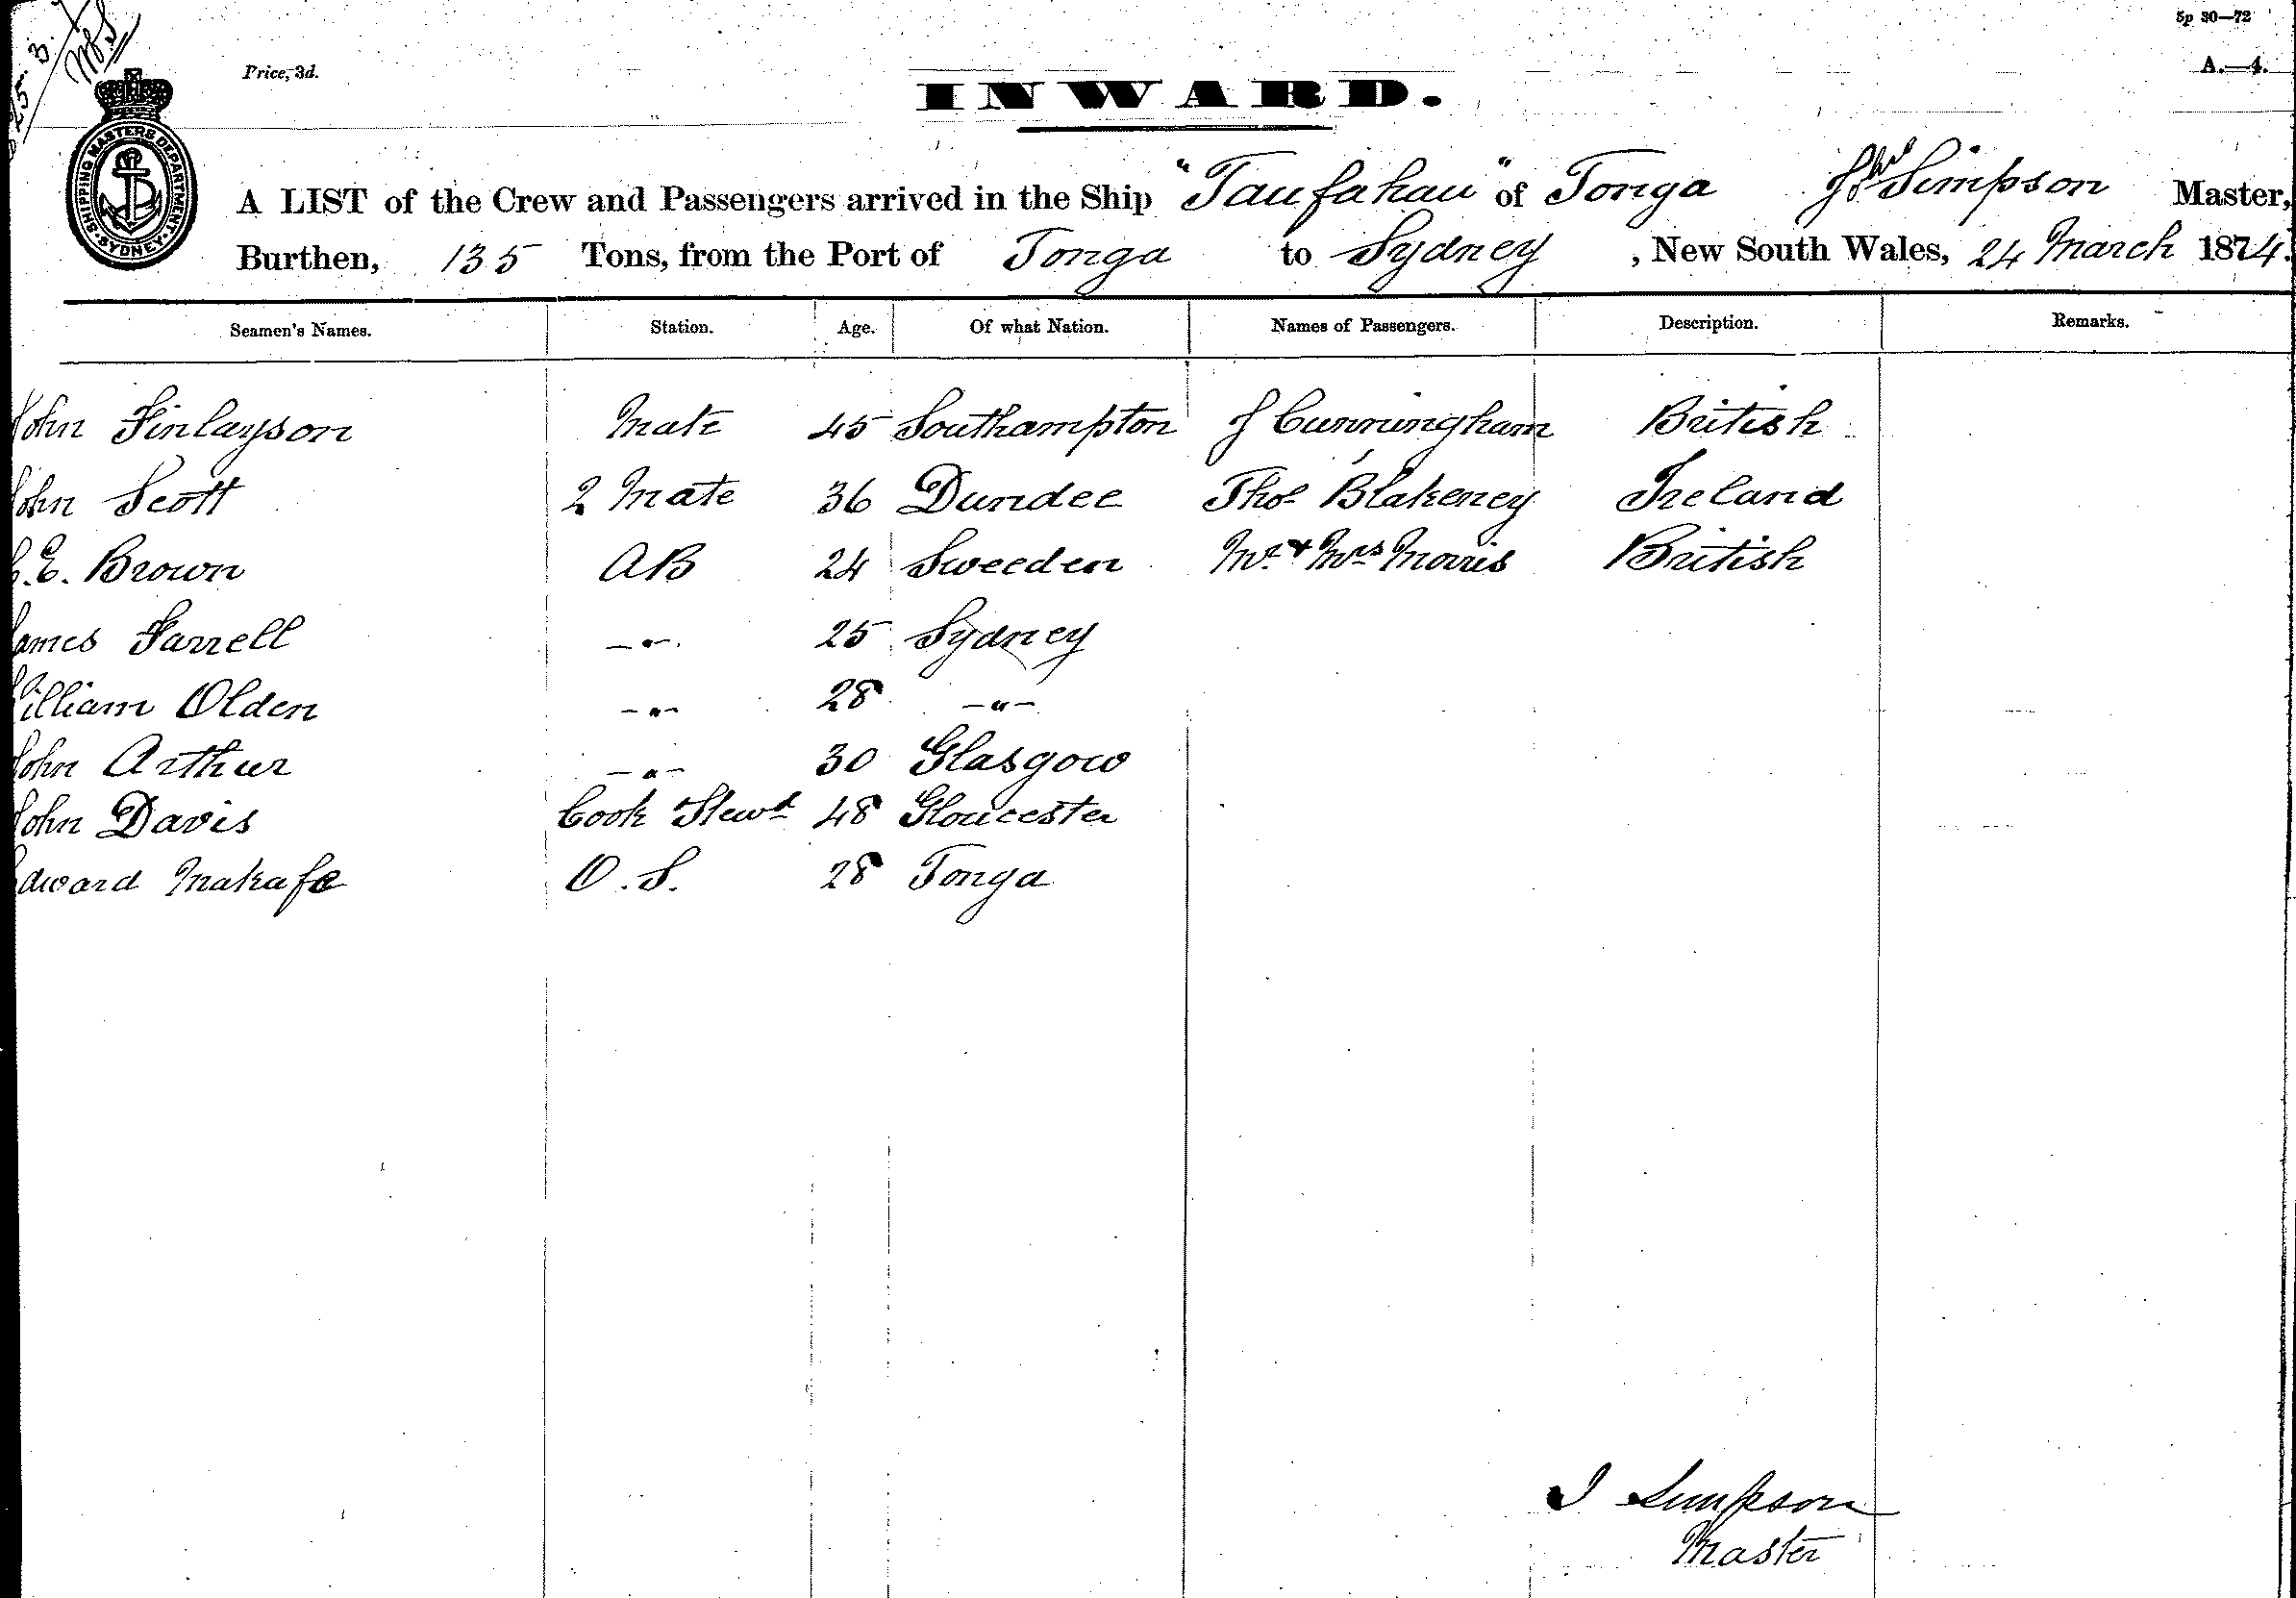 25. 3.
Price, 3d.
5p 30—72
A.—4.
INWARD.
SHIPPING MASTERS DEPARTMENT · SYDNEY ·
A LIST of the Crew and Passengers arrived in the Ship "Taufahau" of Tonga Jno Simpson Master,
Burthen, 135 Tons, from the Port of Tonga to Sydney, New South Wales, 24 March 1874.
Seamen's Names. Station. Age. Of what Nation. Names of Passengers. Description. Remarks.
John Finlayson Mate 45 Southampton J Cunningham British
John Scott 2 Mate 36 Dundee Thos Blakeney Ireland
E. Brown AB 24 Sweeden Mr & Mrs Morris British
James Farrell —"— 25 Sydney
William Olden —"— 28 —"—
John Arthur —"— 30 Glasgow
John Davis Cook Stewd 48 Gloucester
Edward Makafe O.S. 28 Tonga
J Simpson
Master